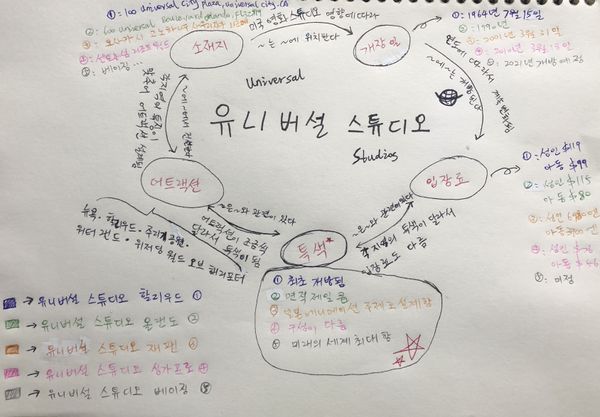 ①: 100 Universal City Plaza, Universal City, CA
②: 6000 Universal
③: 오사카시 고노하나구
④: 센토사섬 리조트월드
⑤: 베이징 ...
소재지
미국 영화 스튜디오 영향에 따라
~는 ~에 위치한다
개장일
①: 1964년 7월 15일
②: 1990년
③: 2001년 3월 31일
④: 2010년 3월 18일
⑤: 2021년 개방 예정
Universal
유니버설 스튜디오
Studios
어트랙션
입장료
①: 성인 $119
아동 $99
②: 성인 $115
아동 $80
③: 성인
④: 성인
아동
⑤: 미정
~은 ~와 관련이 있다
~은 ~와 관련이 있다
어트랙션이 조금씩
달라서 특색이 됨
특색*
각 지역의 특색이 달라서
입장료도 다름
뉴욕 · 할리우드 · 쥬라기공원
워터월드 · 위저딩 월드 오브 해리포터
① 최초 개방됨
② 면적 제일 큼
③ 일본애니메이션 주제로 설계함
④ 구성이 다름
⑤ 미래의 세계 최대 항
→ 유니버설 스튜디오 할리우드 ①
→ 유니버설 스튜디오 올랜도 ②
→ 유니버설 스튜디오 재팬 ③
→ 유니버설 스튜디오 싱가포르 ④
→ 유니버설 스튜디오 베이징 ⑤